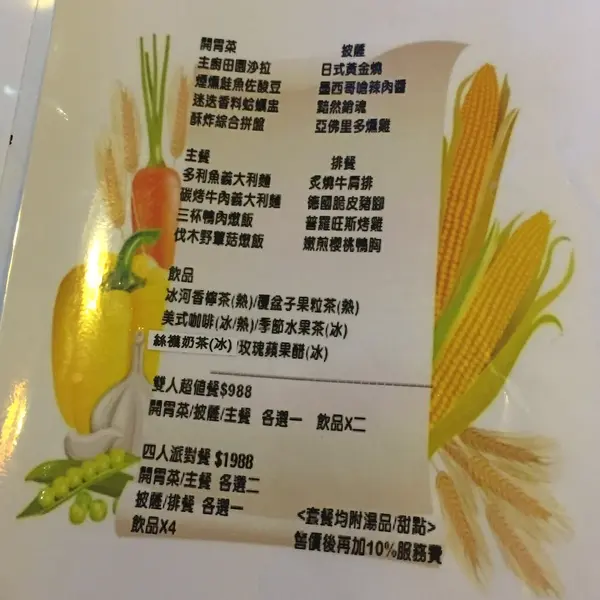 開胃菜
主廚田園沙拉
煙燻鮭魚佐酸豆
迷迭香料蛤蠣盅
酥炸綜合拼盤
披薩
日式黃金燒
墨西哥嗆辣肉醬
黯然銷魂
亞佛里多燻雞
主餐
多利魚義大利麵
碳烤牛肉義大利麵
三杯鴨肉燉飯
伐木野蕈菇燉飯
排餐
炙燒牛肩排
德國脆皮豬腳
普羅旺斯烤雞
嫩煎櫻桃鴨胸
飲品
冰河香檸茶(熱)/覆盆子果粒茶(熱)
美式咖啡(冰/熱)/季節水果茶(冰)
絲襪奶茶(冰)/玫瑰蘋果醋(冰)
雙人超值餐$988
開胃菜/披薩/主餐 各選一 飲品X二
四人派對餐 $1988
開胃菜/主餐 各選二
披薩/排餐 各選一
飲品X4
<套餐均附湯品/甜點>
售價後再加10%服務費